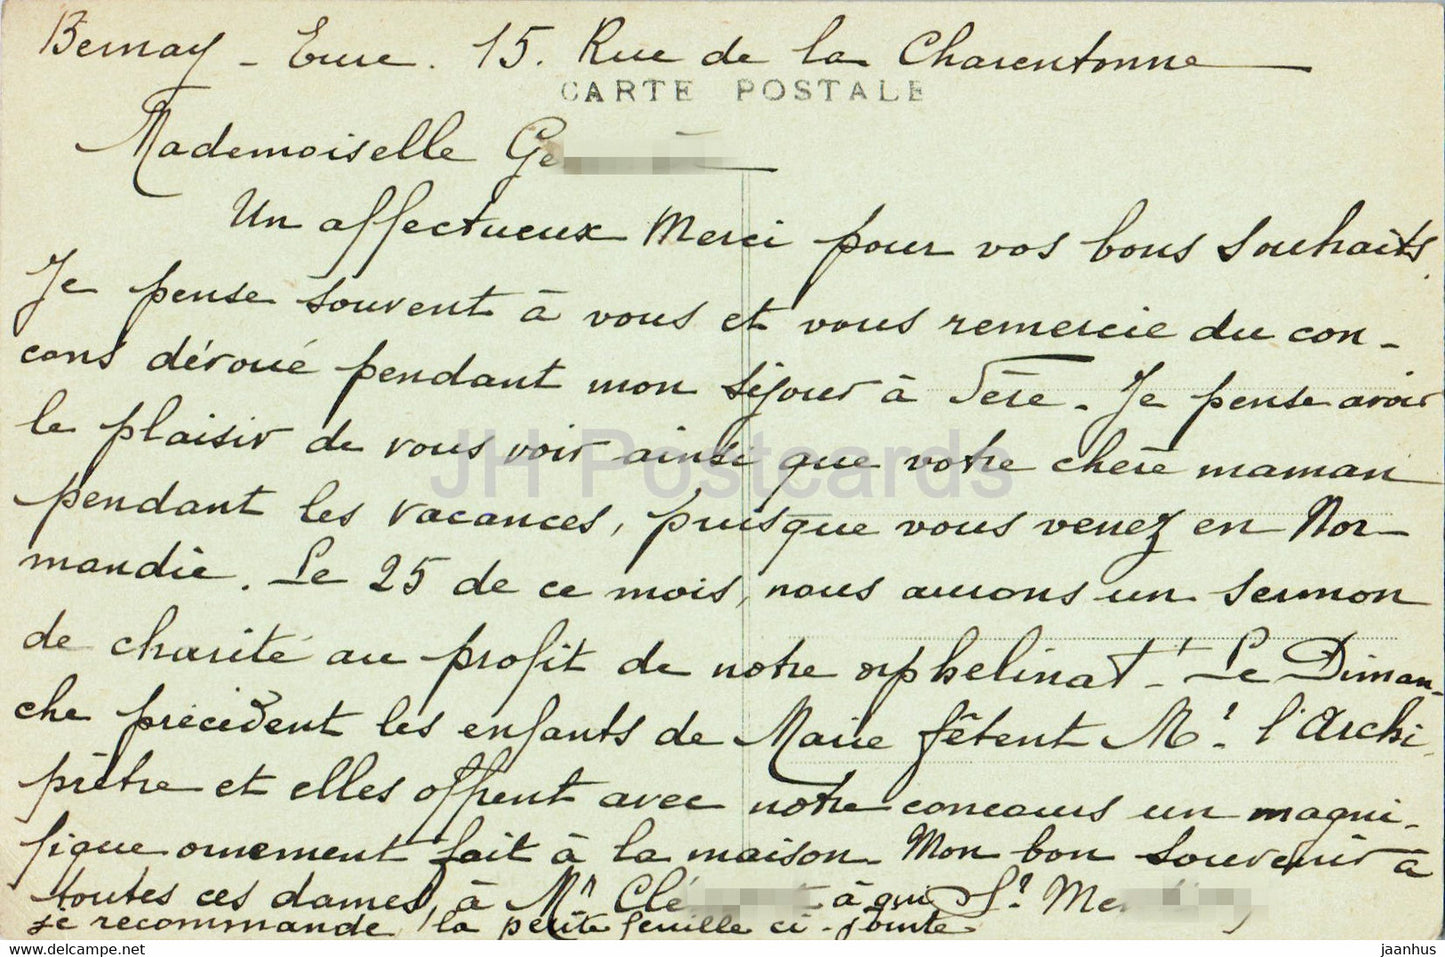 Bernay - Eure. 15. Rue de la Charentonne
CARTE POSTALE
Mademoiselle Ge
Un affectueux Merci pour vos bons souhaits.
Je pense souvent à vous et vous remercie du con-
cours dévoué pendant mon séjour à Fère. Je pense avoir
le plaisir de vous voir ainsi que votre chère maman
pendant les vacances, puisque vous venez en Nor-
mandie. Le 25 de ce mois, nous aurons un sermon
de charité au profit de notre orphelinat. Le Diman-
che précédent les enfants de Marie fêtent Mr. l'Archi-
prêtre et elles offrent avec notre concours un magni-
fique ornement fait à la maison. Mon bon souvenir à
toutes ces dames, à Mr Clé à qui Sr Me
je recommande la petite feuille ci-jointe
JH Postcards
www.delcampe.net
jaanhus